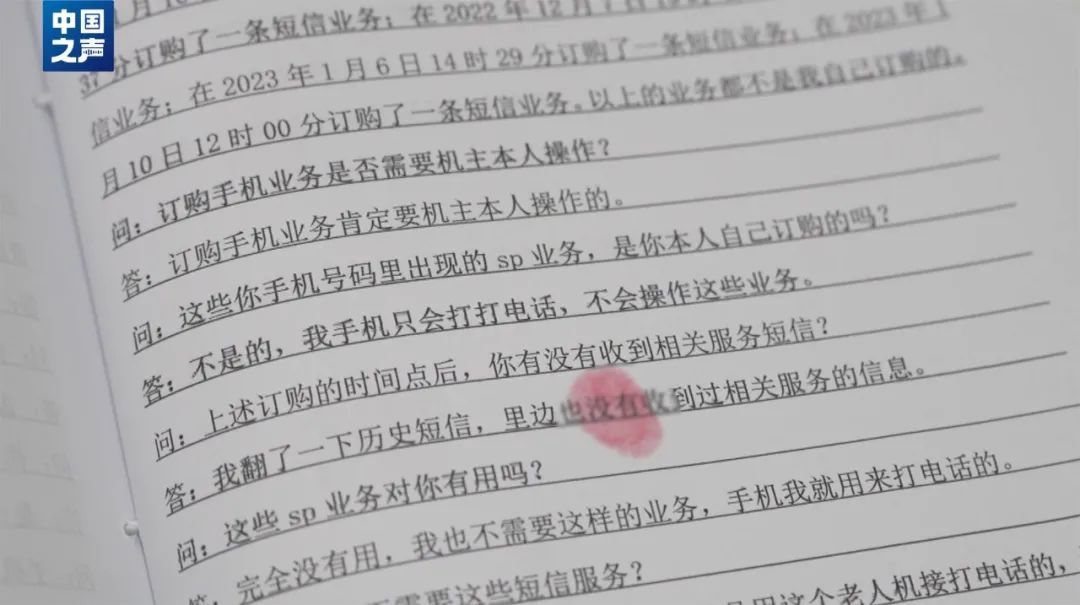 中国
之声
月 10
37 分订购了一条短信业务；在 2022 年 12 月 7 日
信业务；在 2023 年 1 月 6 日 14 时 29 分订购了一条短信业务；在 2023 年 1
月 10 日 12 时 00 分订购了一条短信业务。以上的业务都不是我自己订购的。
问：订购手机业务是否需要机主本人操作？
答：订购手机业务肯定要机主本人操作的。
问：这些你手机号码里出现的 sp 业务，是你本人自己订购的吗？
答：不是的，我手机只会打打电话，不会操作这些业务。
问：上述订购的时间点后，你有没有收到相关服务短信？
答：我翻了一下历史短信，里边也没有收到过相关服务的信息。
问：这些 sp 业务对你有用吗？
答：完全没有用，我也不需要这样的业务，手机我就用来打电话的。
需要这些短信服务？
用这个老人机接打电话的，